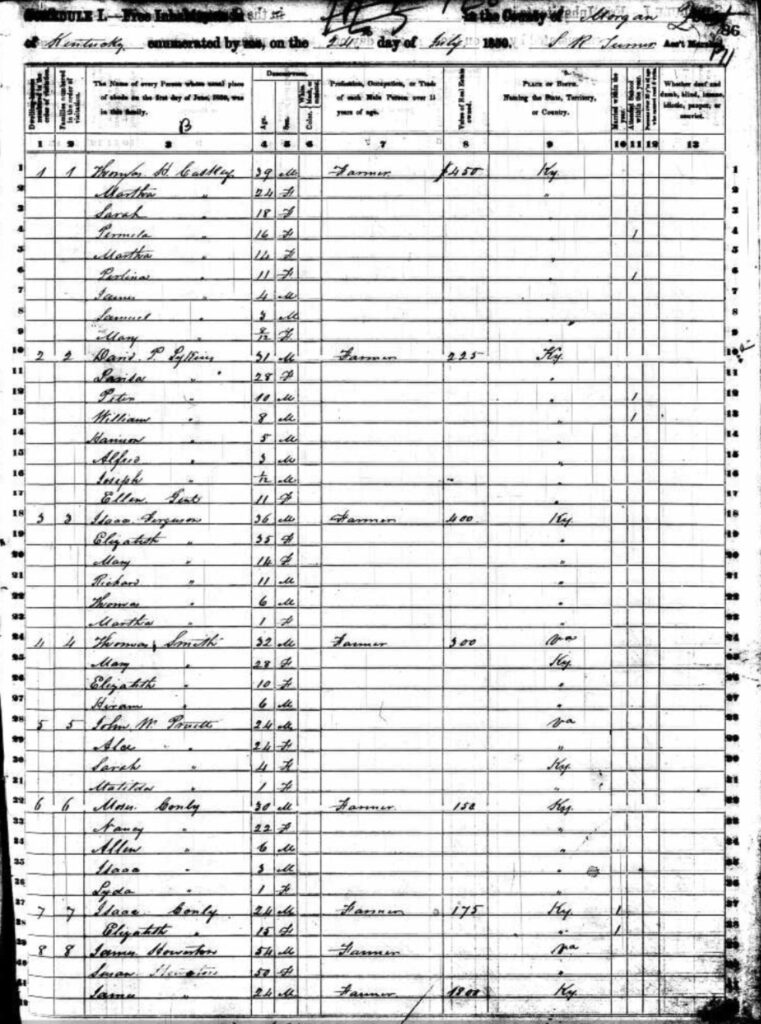 SCHEDULE I.—Free Inhabitants in in the County of Morgan
of Kentucky enumerated by me, on the 24 day of July 1850. S R Turner Ass't Marshal
Dwelling-houses numbered in the order of visitation. Families numbered in the order of visitation. The Name of every Person whose usual place of abode on the first day of June, 1850, was in this family. Description. Age. Sex. Color. Profession, Occupation, or Trade of each Male Person over 15 years of age. Value of Real Estate owned. Place of Birth. Naming the State, Territory, or Country. Married within the year. Attended School within the year. Whether deaf and dumb, blind, insane, idiotic, pauper, or convict.
B
1 2 3 4 5 6 7 8 9 10 11 12 13
1 1 1 Thomas H. 39 M Farmer $450 Ky. 1
2 Martha " 24 F " 2
3 Sarah " 18 F 3
4 Permela " 16 F 1 4
5 Martha " 14 F 5
6 Perlina " 11 F 1 6
7 James " 4 M 7
8 Samuel " 3 M 8
9 Mary " F 9
10 2 2 David P. Lykins 31 M Farmer 225 Ky. 10
11 " 28 F " 11
12 Peter " 10 M " 1 12
13 William " 8 M " 1 13
14 Harrison " 5 M " 14
15 Alfred " 3 M " 15
16 Joseph " M " 16
17 Ellen 11 F " 17
18 3 3 Isaac Ferguson 36 M Farmer 400 Ky. 18
19 Elizabeth " 35 F " 19
20 Mary " 14 F " 20
21 Richard " 11 M " 21
22 Thomas " 6 M " 22
23 Martha " 1 F " 23
24 4 4 Thomas Smith 32 M Farmer 300 Va 24
25 Mary " 28 F Ky. 25
26 Elizabeth " 10 F " 26
27 Hiram " 6 M " 27
28 5 5 John W. Pruett 24 M Va 28
29 " 24 F " 29
30 Sarah " 4 F Ky. 30
31 Matilda " 1 F " 31
32 6 6 Moses Conly 30 M Farmer 150 Ky. 32
33 Nancy " 22 F " 33
34 Allen " 6 M " 34
35 Isaac " 3 M " 35
36 Lyda " 1 F " 36
37 7 7 Isaac Conly 24 M Farmer 175 Ky. 1 37
38 Elizabeth " 15 F " 1 38
39 8 8 James Howerton 54 M Farmer Va 39
40 Susan Howerton 50 F " 40
41 James " 24 M Farmer 1800 Ky. 41